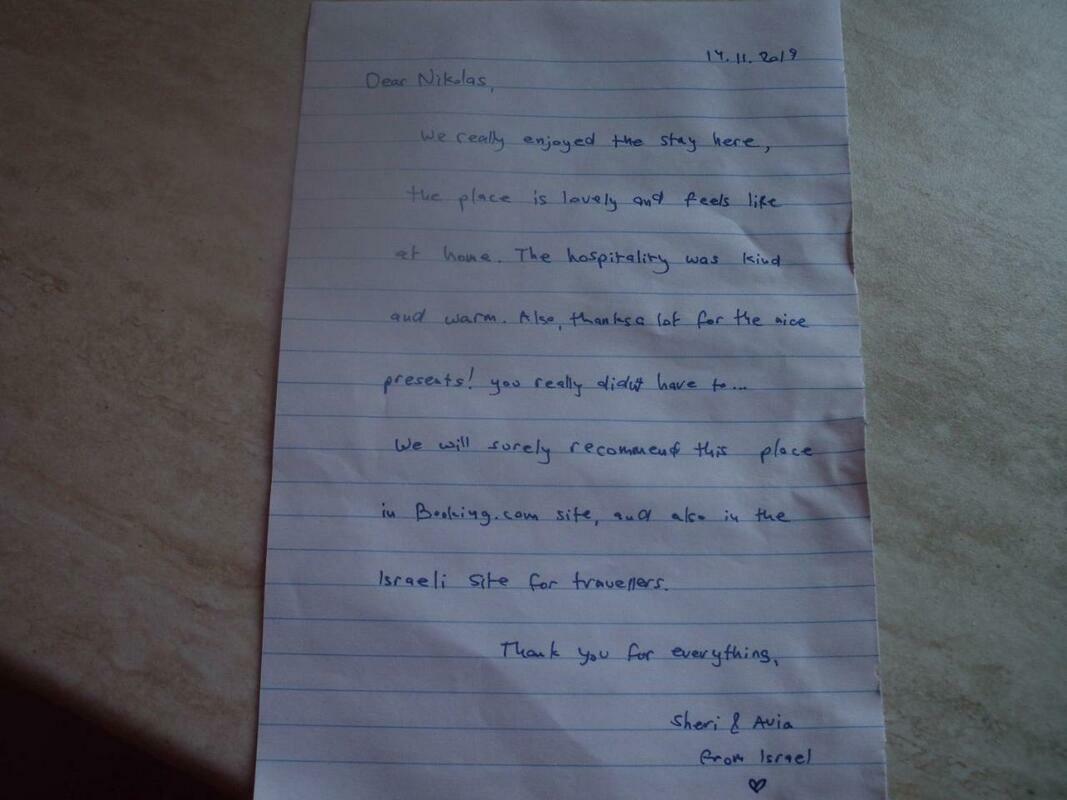 14.11.2019
Dear Nikolas,
We really enjoyed the stay here,
the place is lovely and feels like
at home. The hospitality was kind
and warm. Also, thanks a lot for the nice
presents! you really didn't have to...
We will surely recommend this place
in Booking.com site, and also in the
Israeli site for travellers.
Thank you for everything,
Sheri & Avia
from Israel
♡